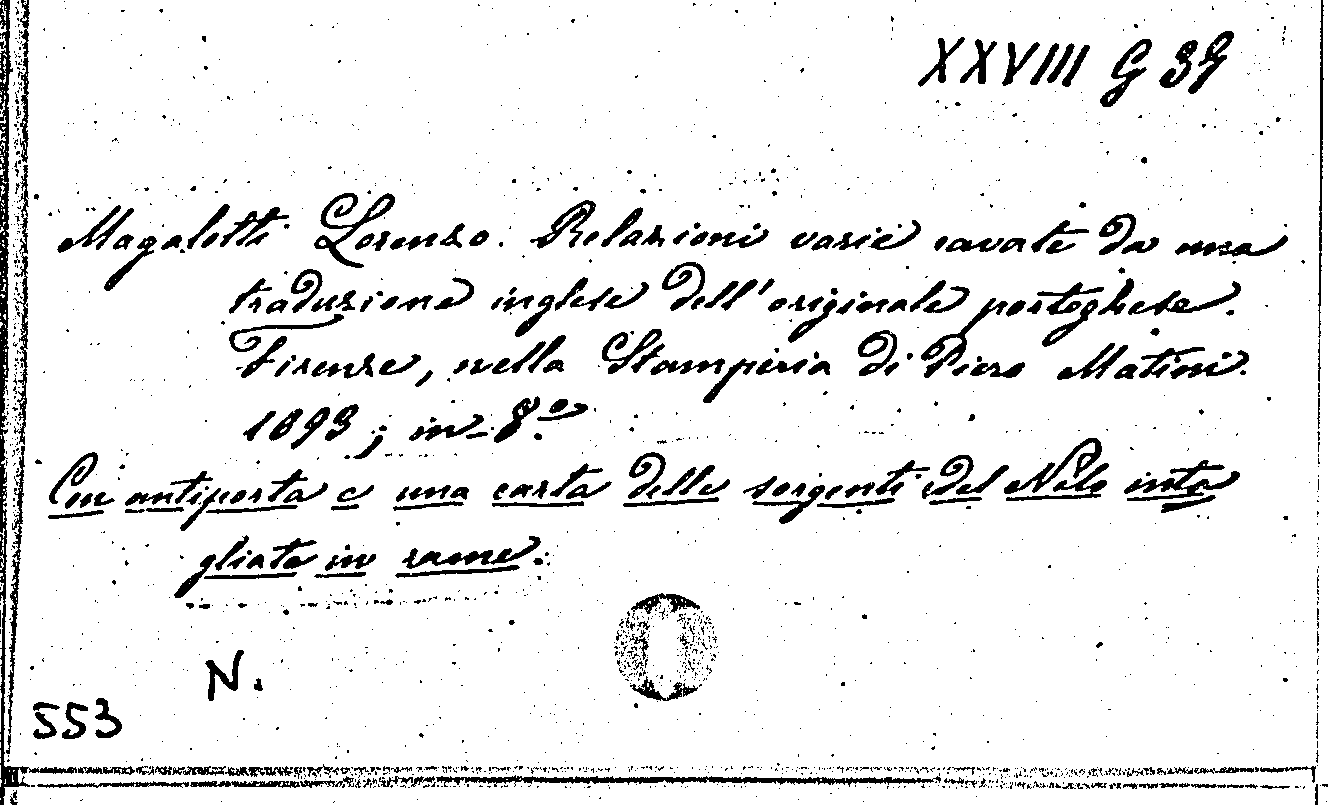 XXVIII G 39
Magalotti Lorenzo. Relazioni varie cavate da una
traduzione inglese dell'originale portoghese.
Firenze, nella Stamperia di Piero Matini.
1693; in-8º.
Con antiporta e una carta delle sorgenti del Nilo inta
gliata in rame.
N.
553